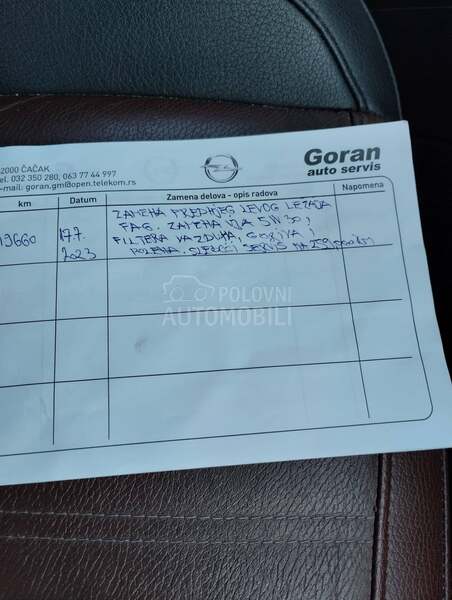 2000 ČAČAK
el. 032 350 280, 063 77 44 997
-mail: goran.gm@open.telekom.rs
Goran
auto servis
km Datum Zamena delova - opis radova Napomena
19660 17.7. 2023
ZAMENA PREDNJEG LEVOG LEŽAJA
FAG. ZAMENA ULJA 5W30,
FILTERA VAZDUHA, GORIVA I
POLENA. SLEDEĆI SERVIS NA
POLOVNI
AUTOMOBILI